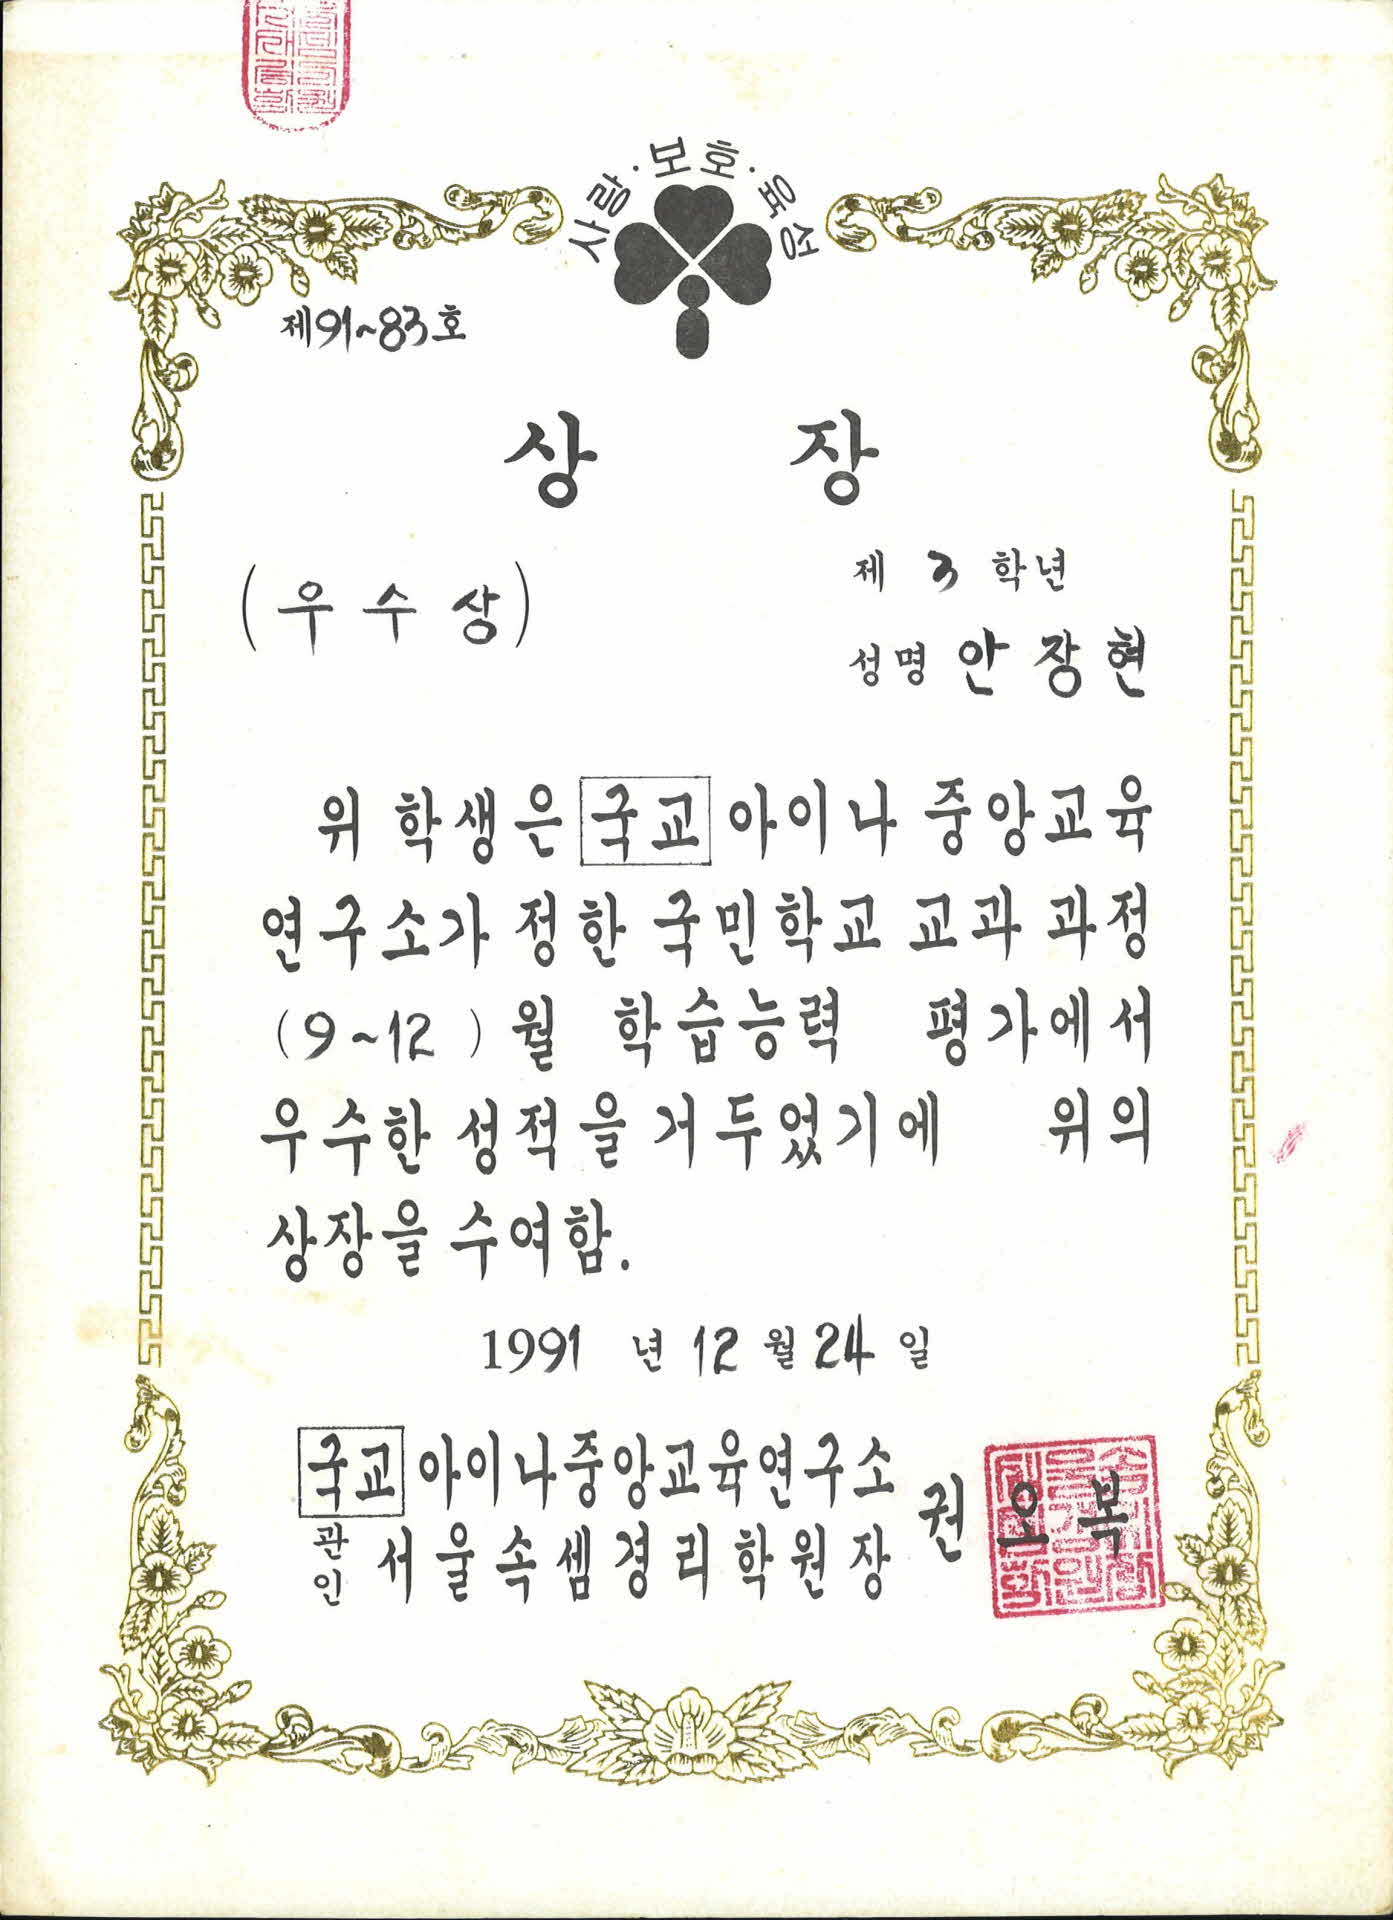 사랑·보호·육성
제91~83호
상 장
(우수상)
제 3 학년
성명 안장현
위 학생은 국교 아이나 중앙교육
연구소가 정한 국민학교 교과 과정
(9~12) 월 학습능력 평가에서
우수한 성적을 거두었기에 위의
상장을 수여함.
1991 년 12 월 24 일
국교 아이나중앙교육연구소
관인 서울속셈경리학원장 권오복